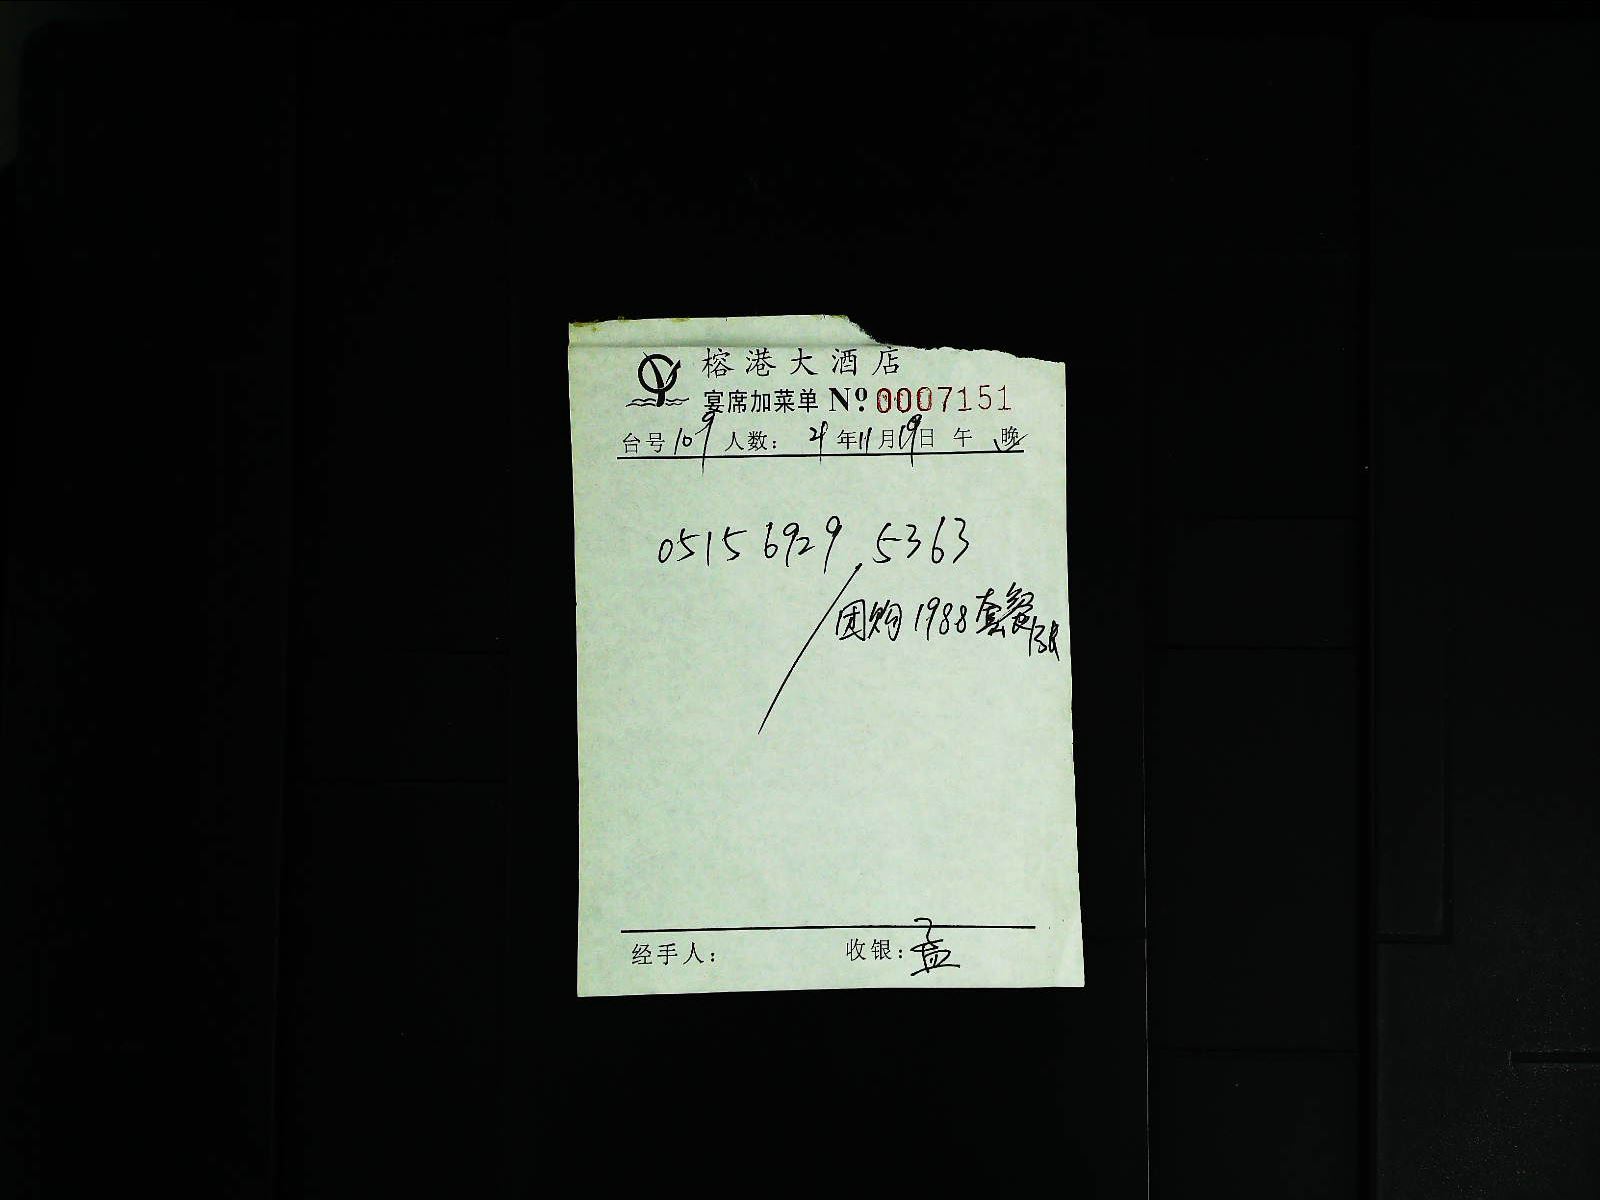 榕港大酒店
宴席加菜单 Nº 0007151
台号 109 人数: 21 年 11 月 19 日 午 晚
0515 6929 5363
团购 1988 套餐 1张
经手人: 收银: 孟